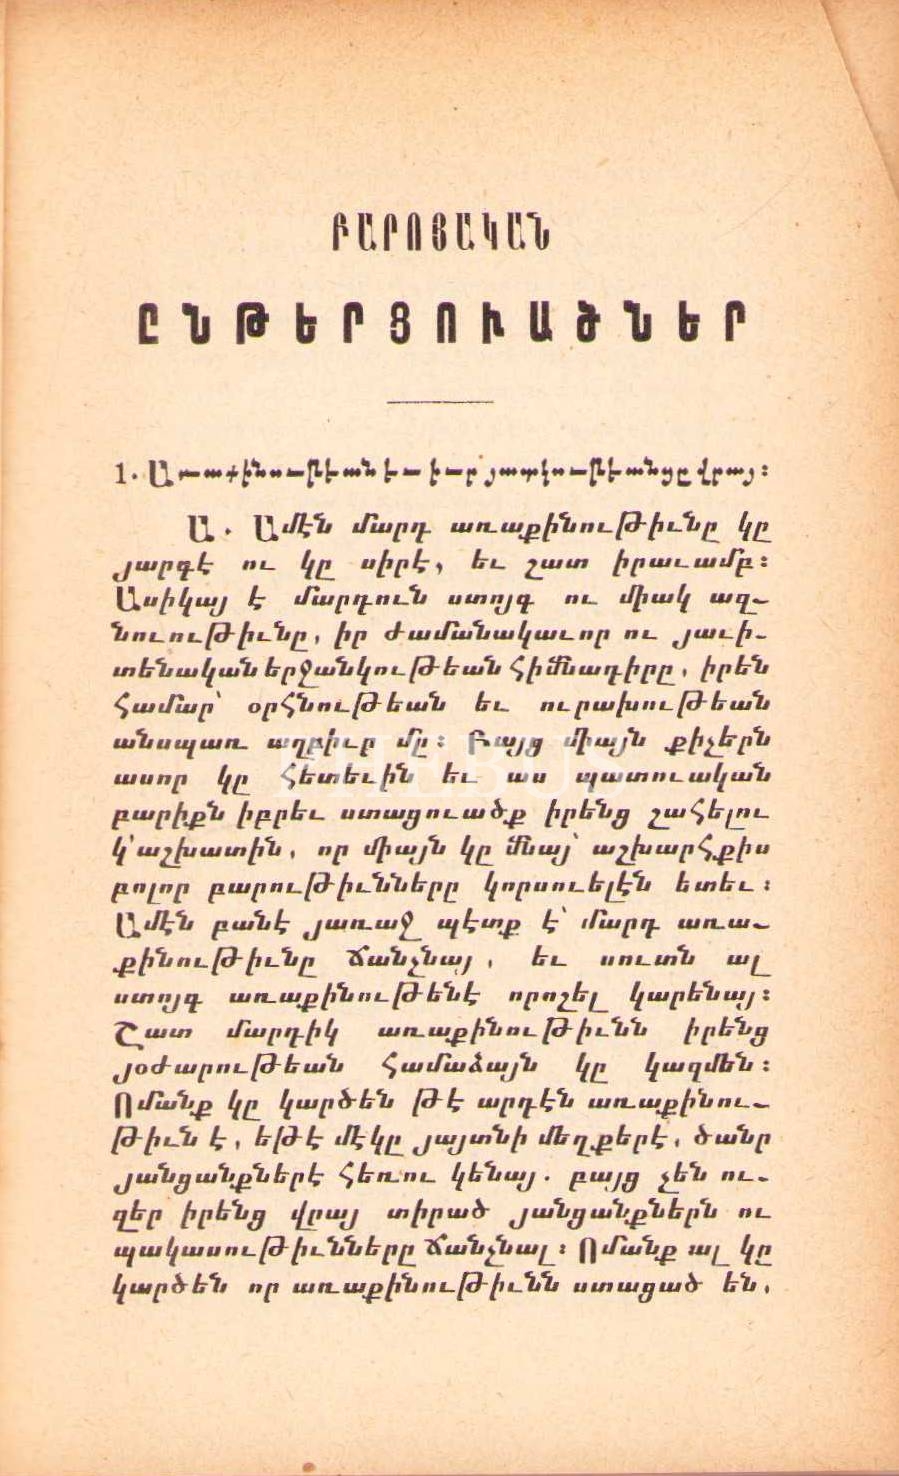 ԲԱՐՈՅԱԿԱՆ
ԸՆԹԵՐՑՈՒԱԾՆԵՐ
1. Առաքինութեան եւ իւր յատկութեանցը վրայ։
Ա. Ամէն մարդ առաքինութիւնը կը
յարգէ ու կը սիրէ, եւ շատ իրաւամբ։
Ասիկայ է մարդուն ստոյգ ու միակ ազ-
նուութիւնը, իր ժամանակաւոր ու յաւի-
տենական երջանկութեան հիմնադիրը, իրեն
համար՝ օրհնութեան եւ ուրախութեան
անսպառ աղբիւր մը։ Բայց միայն քիչերն
ասոր կը հետեւին եւ աս պատուական
բարիքն իբրեւ ստացուածք իրենց շահելու
կ՚աշխատին, որ միայն կը մնայ՝ աշխարհքիս
բոլոր բարութիւնները կորսուելէն ետեւ։
Ամէն բանէ յառաջ պէտք է՝ մարդ առա-
քինութիւնը ճանչնայ, եւ սուտն ալ
ստոյգ առաքինութենէ որոշել կարենայ։
Շատ մարդիկ առաքինութիւնն իրենց
յօժարութեան համաձայն կը կազմեն։
Ոմանք կը կարծեն թէ արդէն առաքինու-
թիւն է, եթէ մէկը յայտնի մեղքերէ, ծանր
յանցանքներէ հեռու կենայ. բայց չեն ու-
զեր իրենց վրայ տիրած յանցանքներն ու
պակասութիւնները ճանչնալ։ Ոմանք ալ կը
կարծեն որ առաքինութիւնն ստացած են,